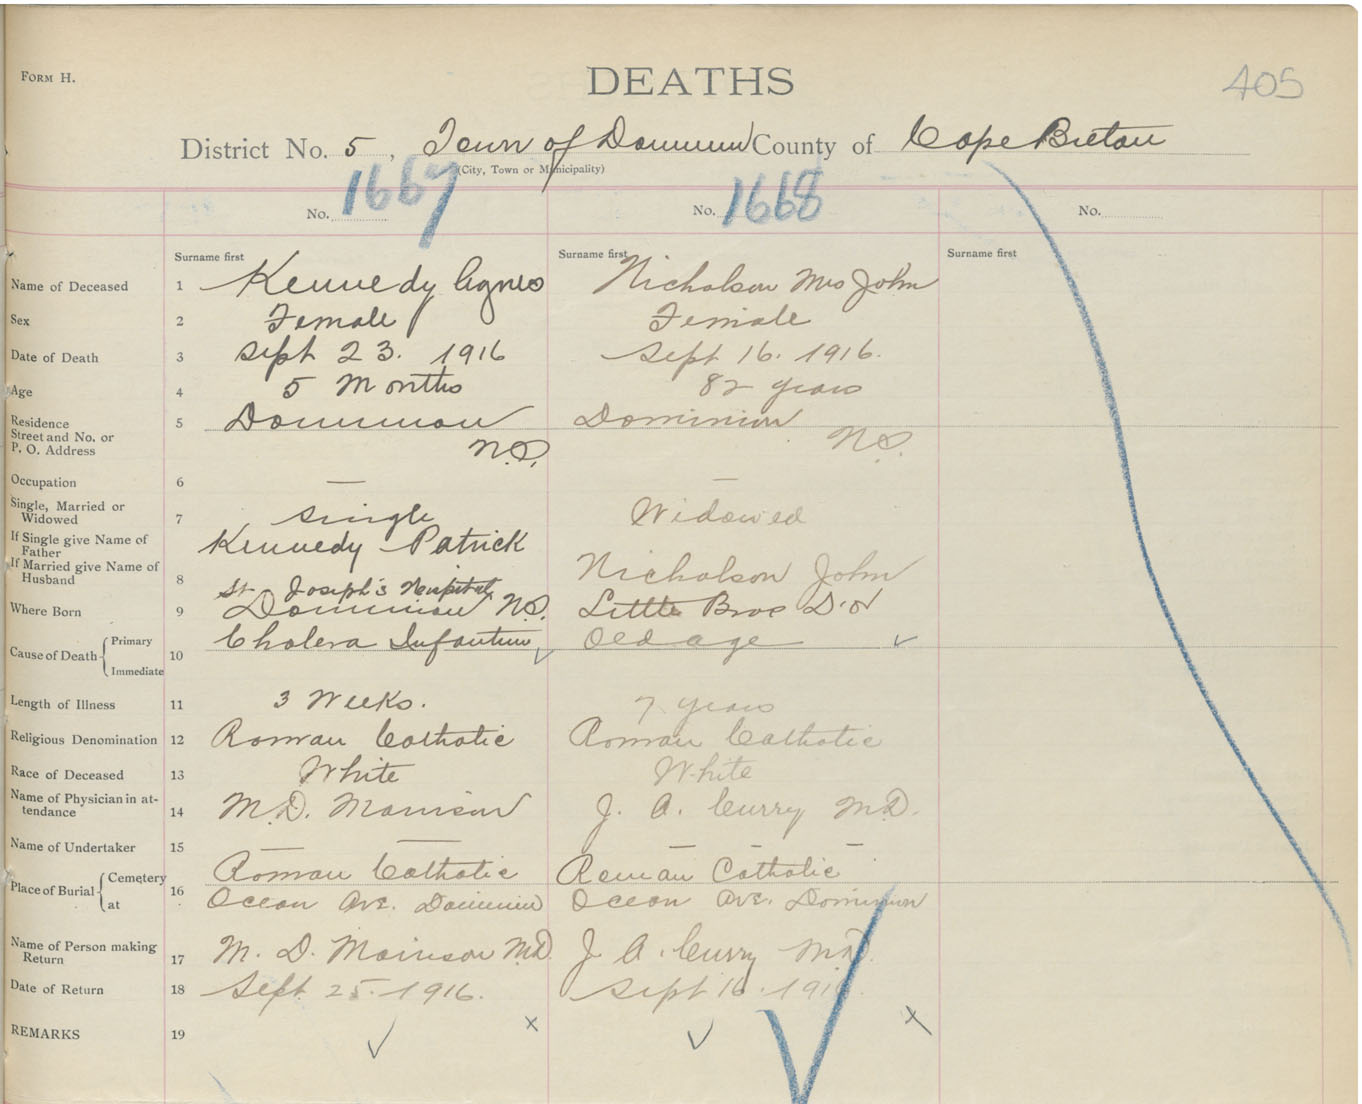 FORM H.
DEATHS
405
District No. 5, Town of Dominion County of Cape Breton
(City, Town or Municipality)
No. 1667 No. 1668 No.
Surname first Surname first Surname first
Name of Deceased 1 Kennedy Agnes Nicholson Mrs John
Sex 2 Female Female
Date of Death 3 Sept 23. 1916 Sept 16. 1916.
Age 4 5 Months 82 years
Residence 5 Dominion Dominion
Street and No. or
P. O. Address N.S. N.S.
Occupation 6 — —
Single, Married or
Widowed 7 Single Widowed
If Single give Name of
Father Kennedy Patrick
If Married give Name of
Husband 8 Nicholson John
St. Joseph's Hospital
Where Born 9 Dominion N.S. Little Bras D'or
Cause of Death Primary 10 Cholera Infantum Old age
Immediate
Length of Illness 11 3 Weeks. 7 years
Religious Denomination 12 Roman Catholic Roman Catholic
Race of Deceased 13 White White
Name of Physician in at-
tendance 14 M.D. Morrison J. A. Curry M.D.
Name of Undertaker 15 — — — — —
Place of Burial Cemetery 16 Roman Catholic Roman Catholic
at Ocean Ave. Dominion Ocean Ave. Dominion
Name of Person making
Return 17 M. D. Morrison M.D. J A. Curry M.D.
Date of Return 18 Sept. 25. 1916. Sept 16. 1916
REMARKS 19